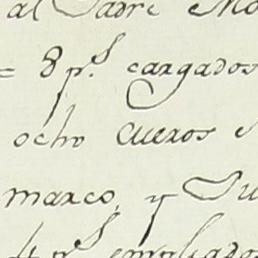 al Padre
= 8 p.s cargados
ocho cueros
marco, y Su
4 p.s empleados